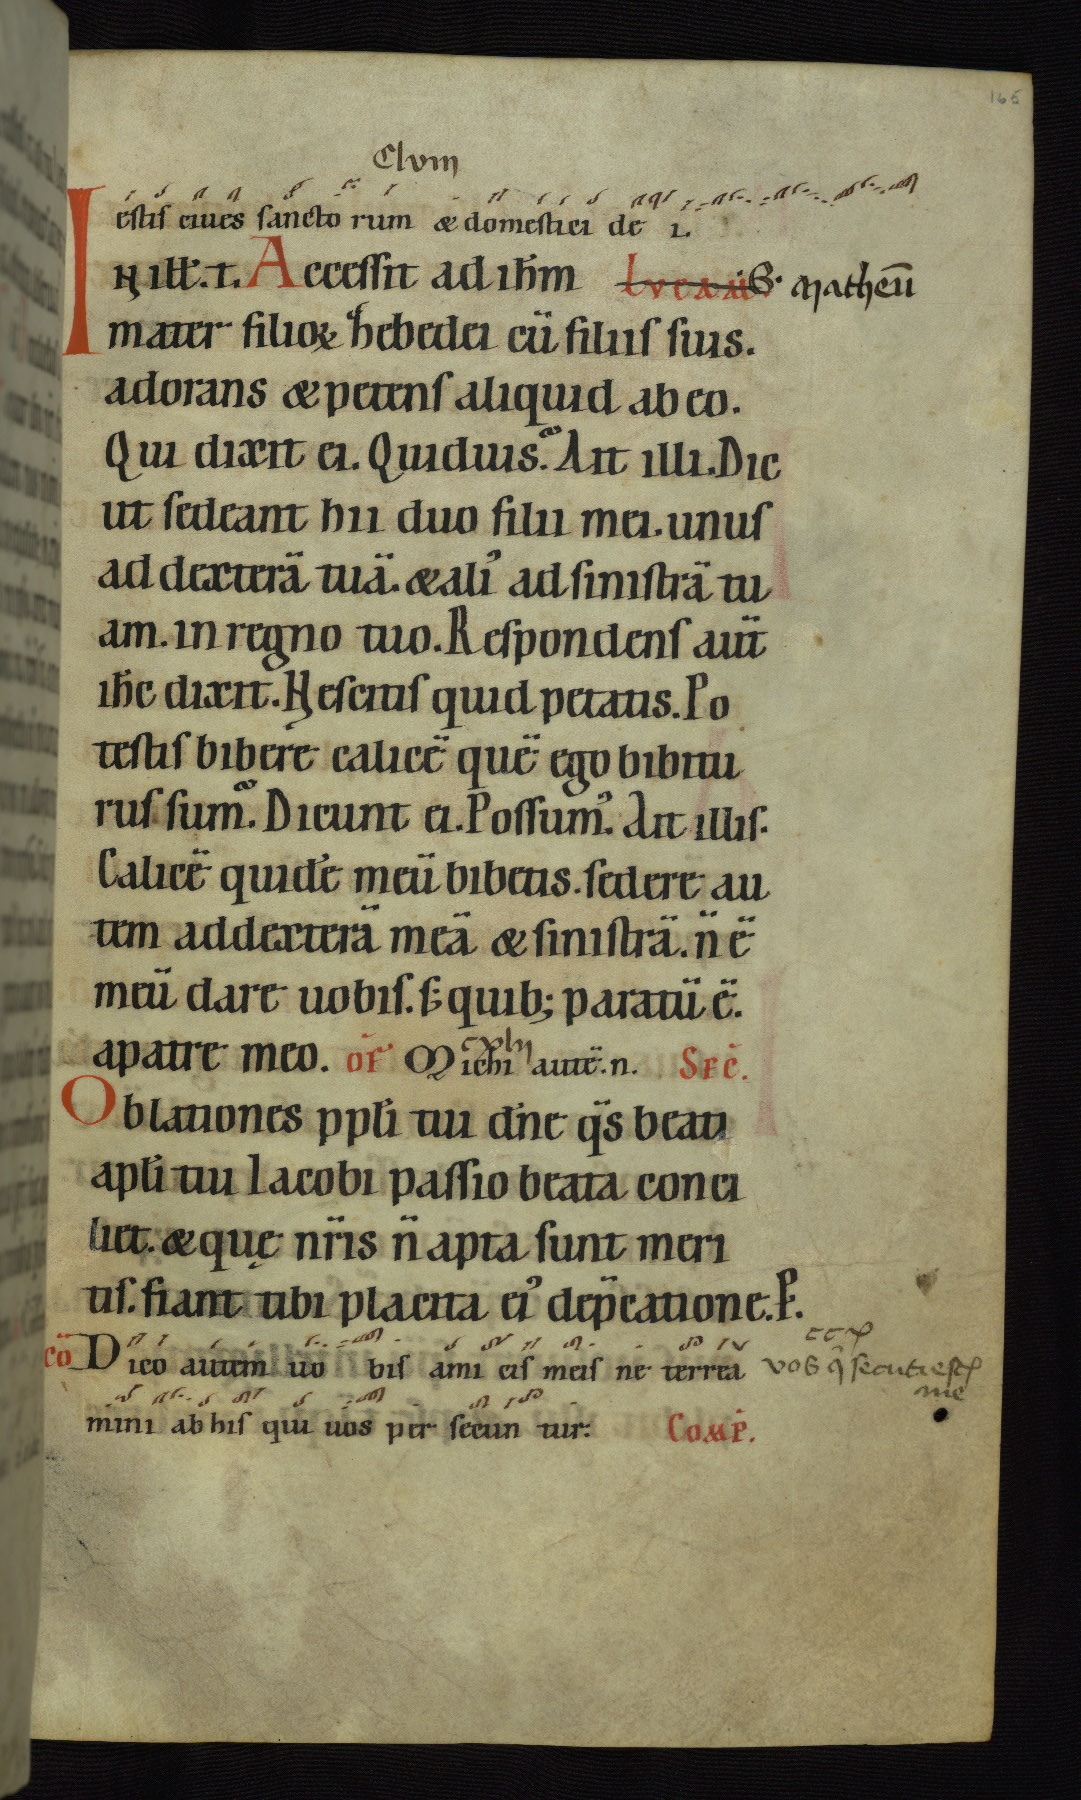 165
Clviij
estis ciues sancto rum & domestici de i.
IN ill̅. t. Accessit ad ih̅m Lucam. S. Matheu̅
mater filioꝝ zebedei cu̅ filiis suis.
adorans & petens aliquid ab eo.
Qui dixit ei. Quid uis. Ait illi. Dic
ut sedeant hii duo filii mei. unus
ad dextera̅ tua̅. & aliꝰ ad sinistra̅ tu
am. in regno tuo. Respondens aut̅
ih̅c dixit. Nescitis quid petatis. Po
testis bibere calice̅ que̅ ego bibitu
rus sum. Dicunt ei. Possumꝰ. Ait illis.
Calice̅ quide̅ meu̅ bibetis. sedere au
tem ad dextera̅ mea̅ & sinistra̅. n̅ e̅
meu̅ dare uobis. s; quib; paratu̅ e̅.
a patre meo. of̅ Michi cxlij aute̅. n. Sec̅.
Oblationes ppl̅i tui dn̅e qs̅ beati
apl̅i tui Iacobi passio beata conci
liet. & quę nr̅is n̅ apta sunt meri
tis. fiant tibi placita eiꝰ dep̅catione. P.
co̅ Dico autem uo bis ami cis meis ne terrea vos q̅ secuti estis
mini ab his qui uos per secun tur: me
Comp̅.